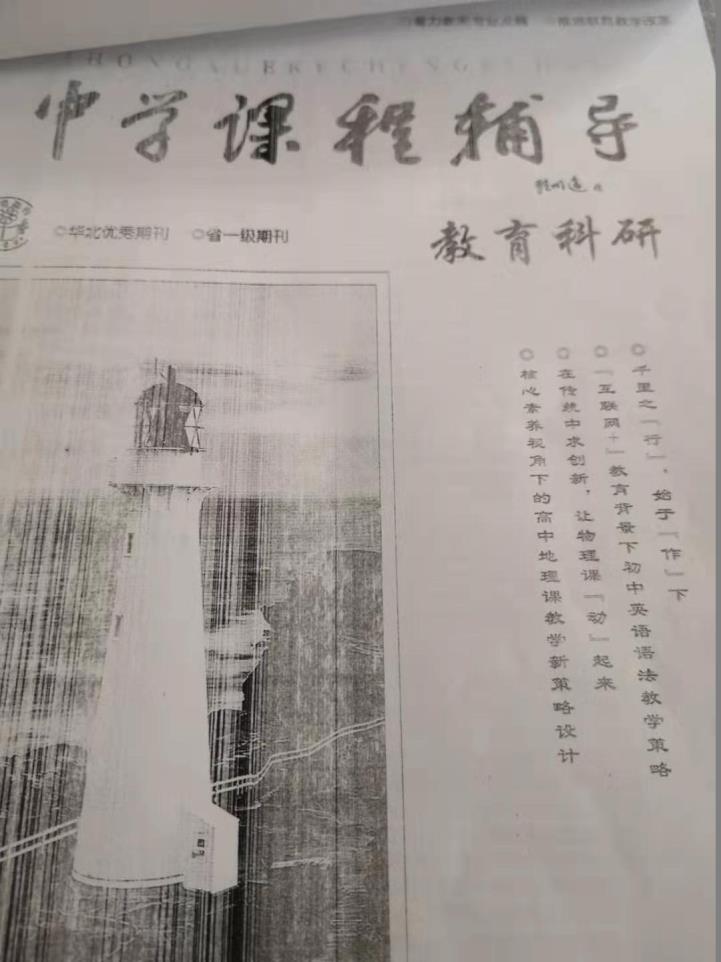 ◎着力教育专业发展 ◎推进教育教学改革
ZHONGXUEKECHENGFUDAO
中学课程辅导
◎华北优秀期刊 ◎省一级期刊
教育科研
◎千里之『行』，始于『作』下
◎『互联网+』教育背景下初中英语语法教学策略
◎在传统中求创新，让物理课『动』起来
◎核心素养视角下的高中地理课教学新策略设计